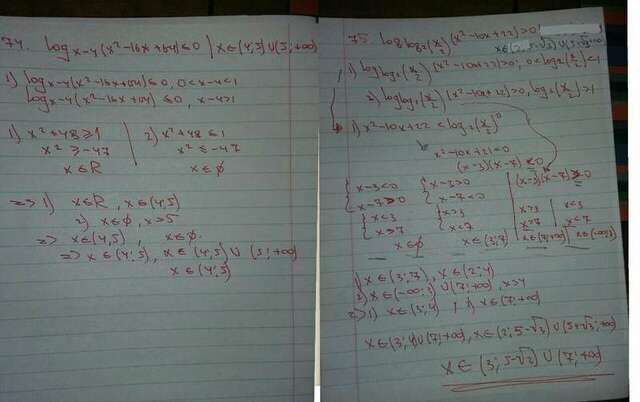 74. log x-4 (x²-16x+64) ≤ 0 | x∈(4;5)∪(5;+∞)
1) log x-4 (x²-16x+64) ≤ 0, 0<x-4<1
log x-4 (x²-16x+64) ≤ 0, x-4>1
1) x²+48≥1 2) x²+48≤1
x²≥-47 x²≤-47
x∈R x∈ø
=> 1) x∈R, x∈(4;5)
2) x∈ø, x>5
=> x∈(4;5), x∈ø
=> x∈(4;5), x∈(4;5)∪(5;+∞)
x∈(4;5)
75. log log2(x/2) (x²-10x+22)>0
1) log log2(x/2) (x²-10x+22)>0, 0<log2(x/2)<1
2) log log2(x/2) (x²-10x+22)>0, log2(x/2)>1
1) x²-10x+22 < log2(x/2)⁰
x²-10x+21<0
(x-3)(x-7)<0
{x-3<0 {x-3>0 (x-3)(x-7)>0
x-7>0 x-7<0
{x<3 {x>3 x>3 x<3
x>7 x<7 x>7 x<7
x∈ø x∈(3;7) x∈(7;+∞) x∈(-∞;3)
1) x∈(3;7), x∈(2;4)
2) x∈(-∞;3)∪(7;+∞), x>4
=> 1) x∈(3;4), x∈(7;+∞)
x∈(3;4)∪(7;+∞), x∈(2;5-√3)∪(5+√3;+∞)
x∈(3;5-√3)∪(7;+∞)